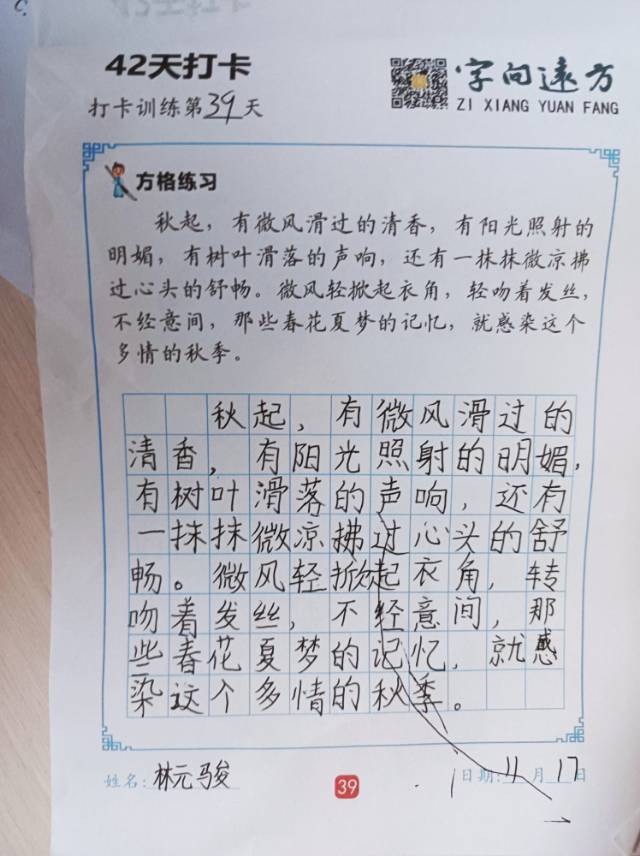 42天打卡
打卡训练第39天
字向远方
ZI XIANG YUAN FANG
方格练习
秋起，有微风滑过的清香，有阳光照射的
明媚，有树叶滑落的声响，还有一抹抹微凉拂
过心头的舒畅。微风轻掀起衣角，轻吻着发丝，
不经意间，那些春花夏梦的记忆，就感染这个
多情的秋季。
秋起，有微风滑过的
清香，有阳光照射的明媚，
有树叶滑落的声响，还有
一抹抹微凉拂过心头的舒
畅。微风轻掀起衣角，转
吻着发丝，不经意间，那
些春花夏梦的记忆，就感
染这个多情的秋季。
姓名：林元骏
39
日期：11月17日